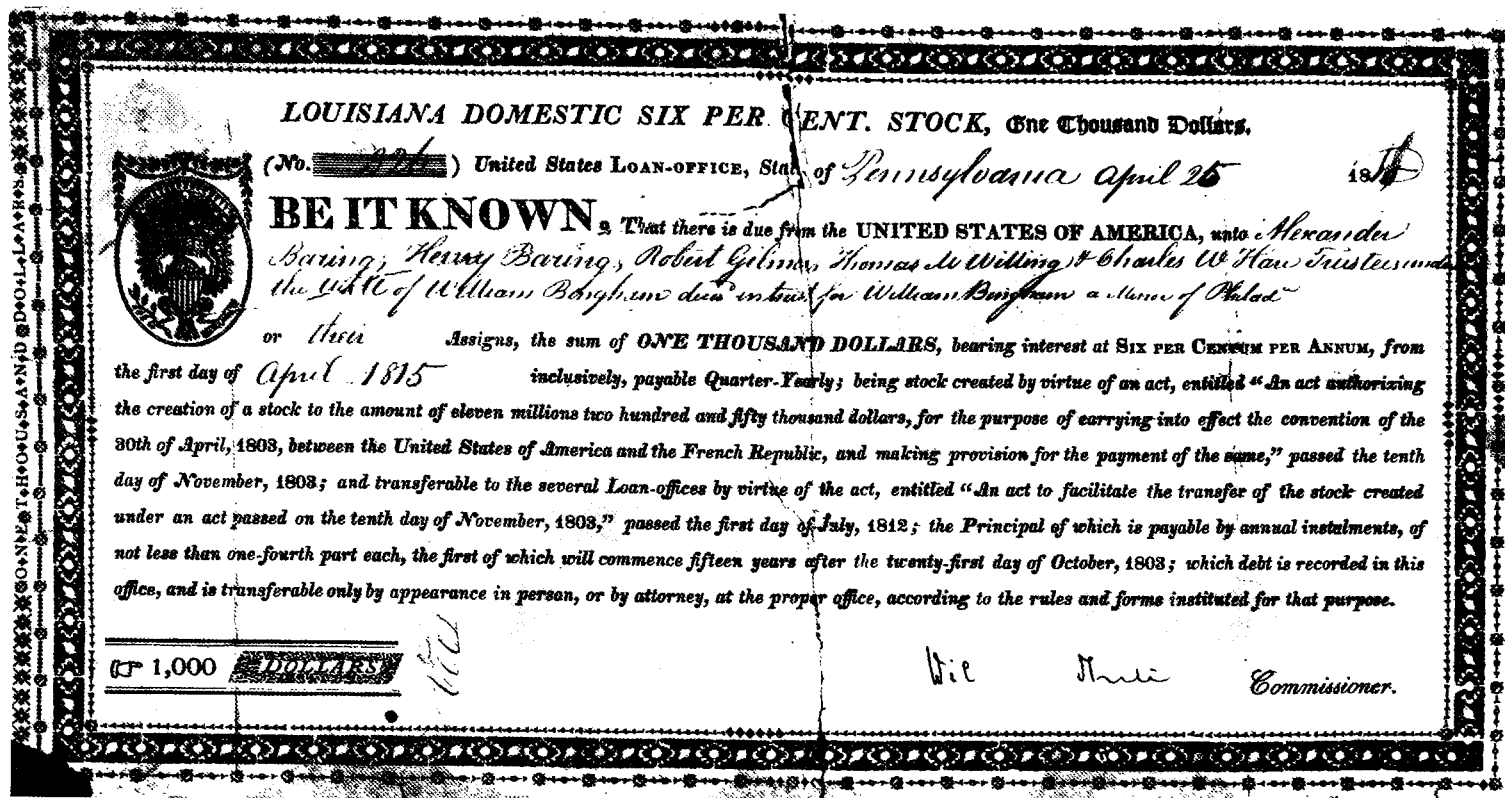 LOUISIANA DOMESTIC SIX PER CENT. STOCK, One Thousand Dollars.
(No. 226) United States LOAN-OFFICE, State of Pennsylvania April 25 18
BE IT KNOWN, That there is due from the UNITED STATES OF AMERICA, unto Alexander
Baring, Henry Baring, Robert Gilmor, Thomas M Willing & Charles W Hare Trustees under
the will of William Bingham decd in trust for William Bingham a Minor of Philada
or their Assigns, the sum of ONE THOUSAND DOLLARS, bearing interest at SIX PER CENTUM PER ANNUM, from
the first day of April 1815 inclusively, payable Quarter-Yearly; being stock created by virtue of an act, entitled "An act authorizing
the creation of a stock to the amount of eleven millions two hundred and fifty thousand dollars, for the purpose of carrying into effect the convention of the
30th of April, 1803, between the United States of America and the French Republic, and making provision for the payment of the same," passed the tenth
day of November, 1803; and transferable to the several Loan-offices by virtue of the act, entitled "An act to facilitate the transfer of the stock created
under an act passed on the tenth day of November, 1803," passed the first day of July, 1812; the Principal of which is payable by annual instalments, of
not less than one-fourth part each, the first of which will commence fifteen years after the twenty-first day of October, 1803; which debt is recorded in this
office, and is transferable only by appearance in person, or by attorney, at the proper office, according to the rules and forms instituted for that purpose.
☞ 1,000 DOLLARS
Wil Commissioner.
ONE THOUSAND DOLLARS